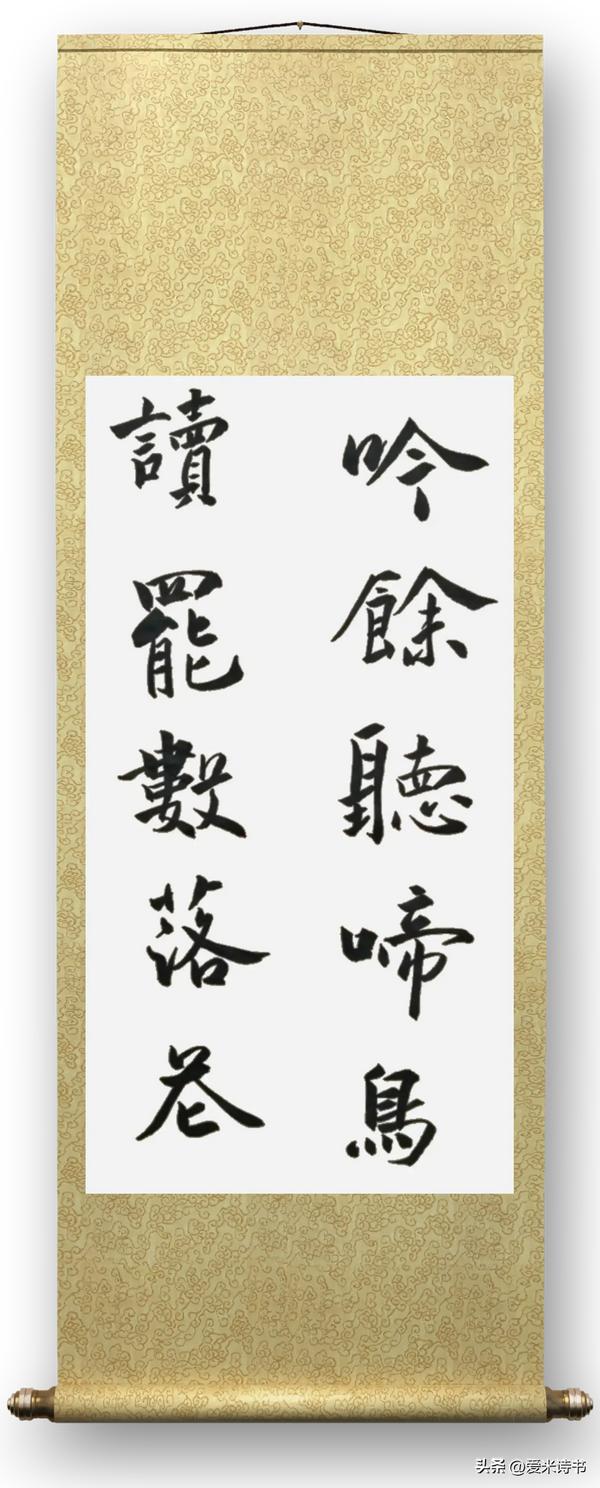 吟餘聽啼鳥
讀罷數落花
头条 @爱米诗书